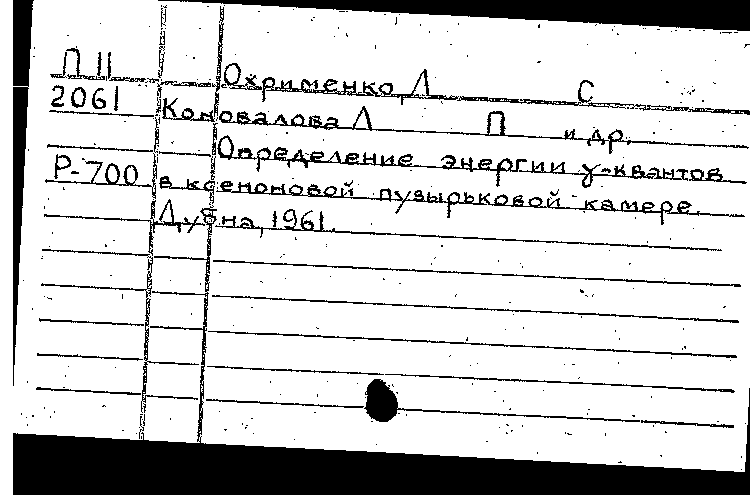 П 11 Охрименко, Л С
2061 Коновалова Л П и др.
Определение энергии γ-квантов
Р-700 в ксеноновой пузырьковой камере.
Дубна, 1961.